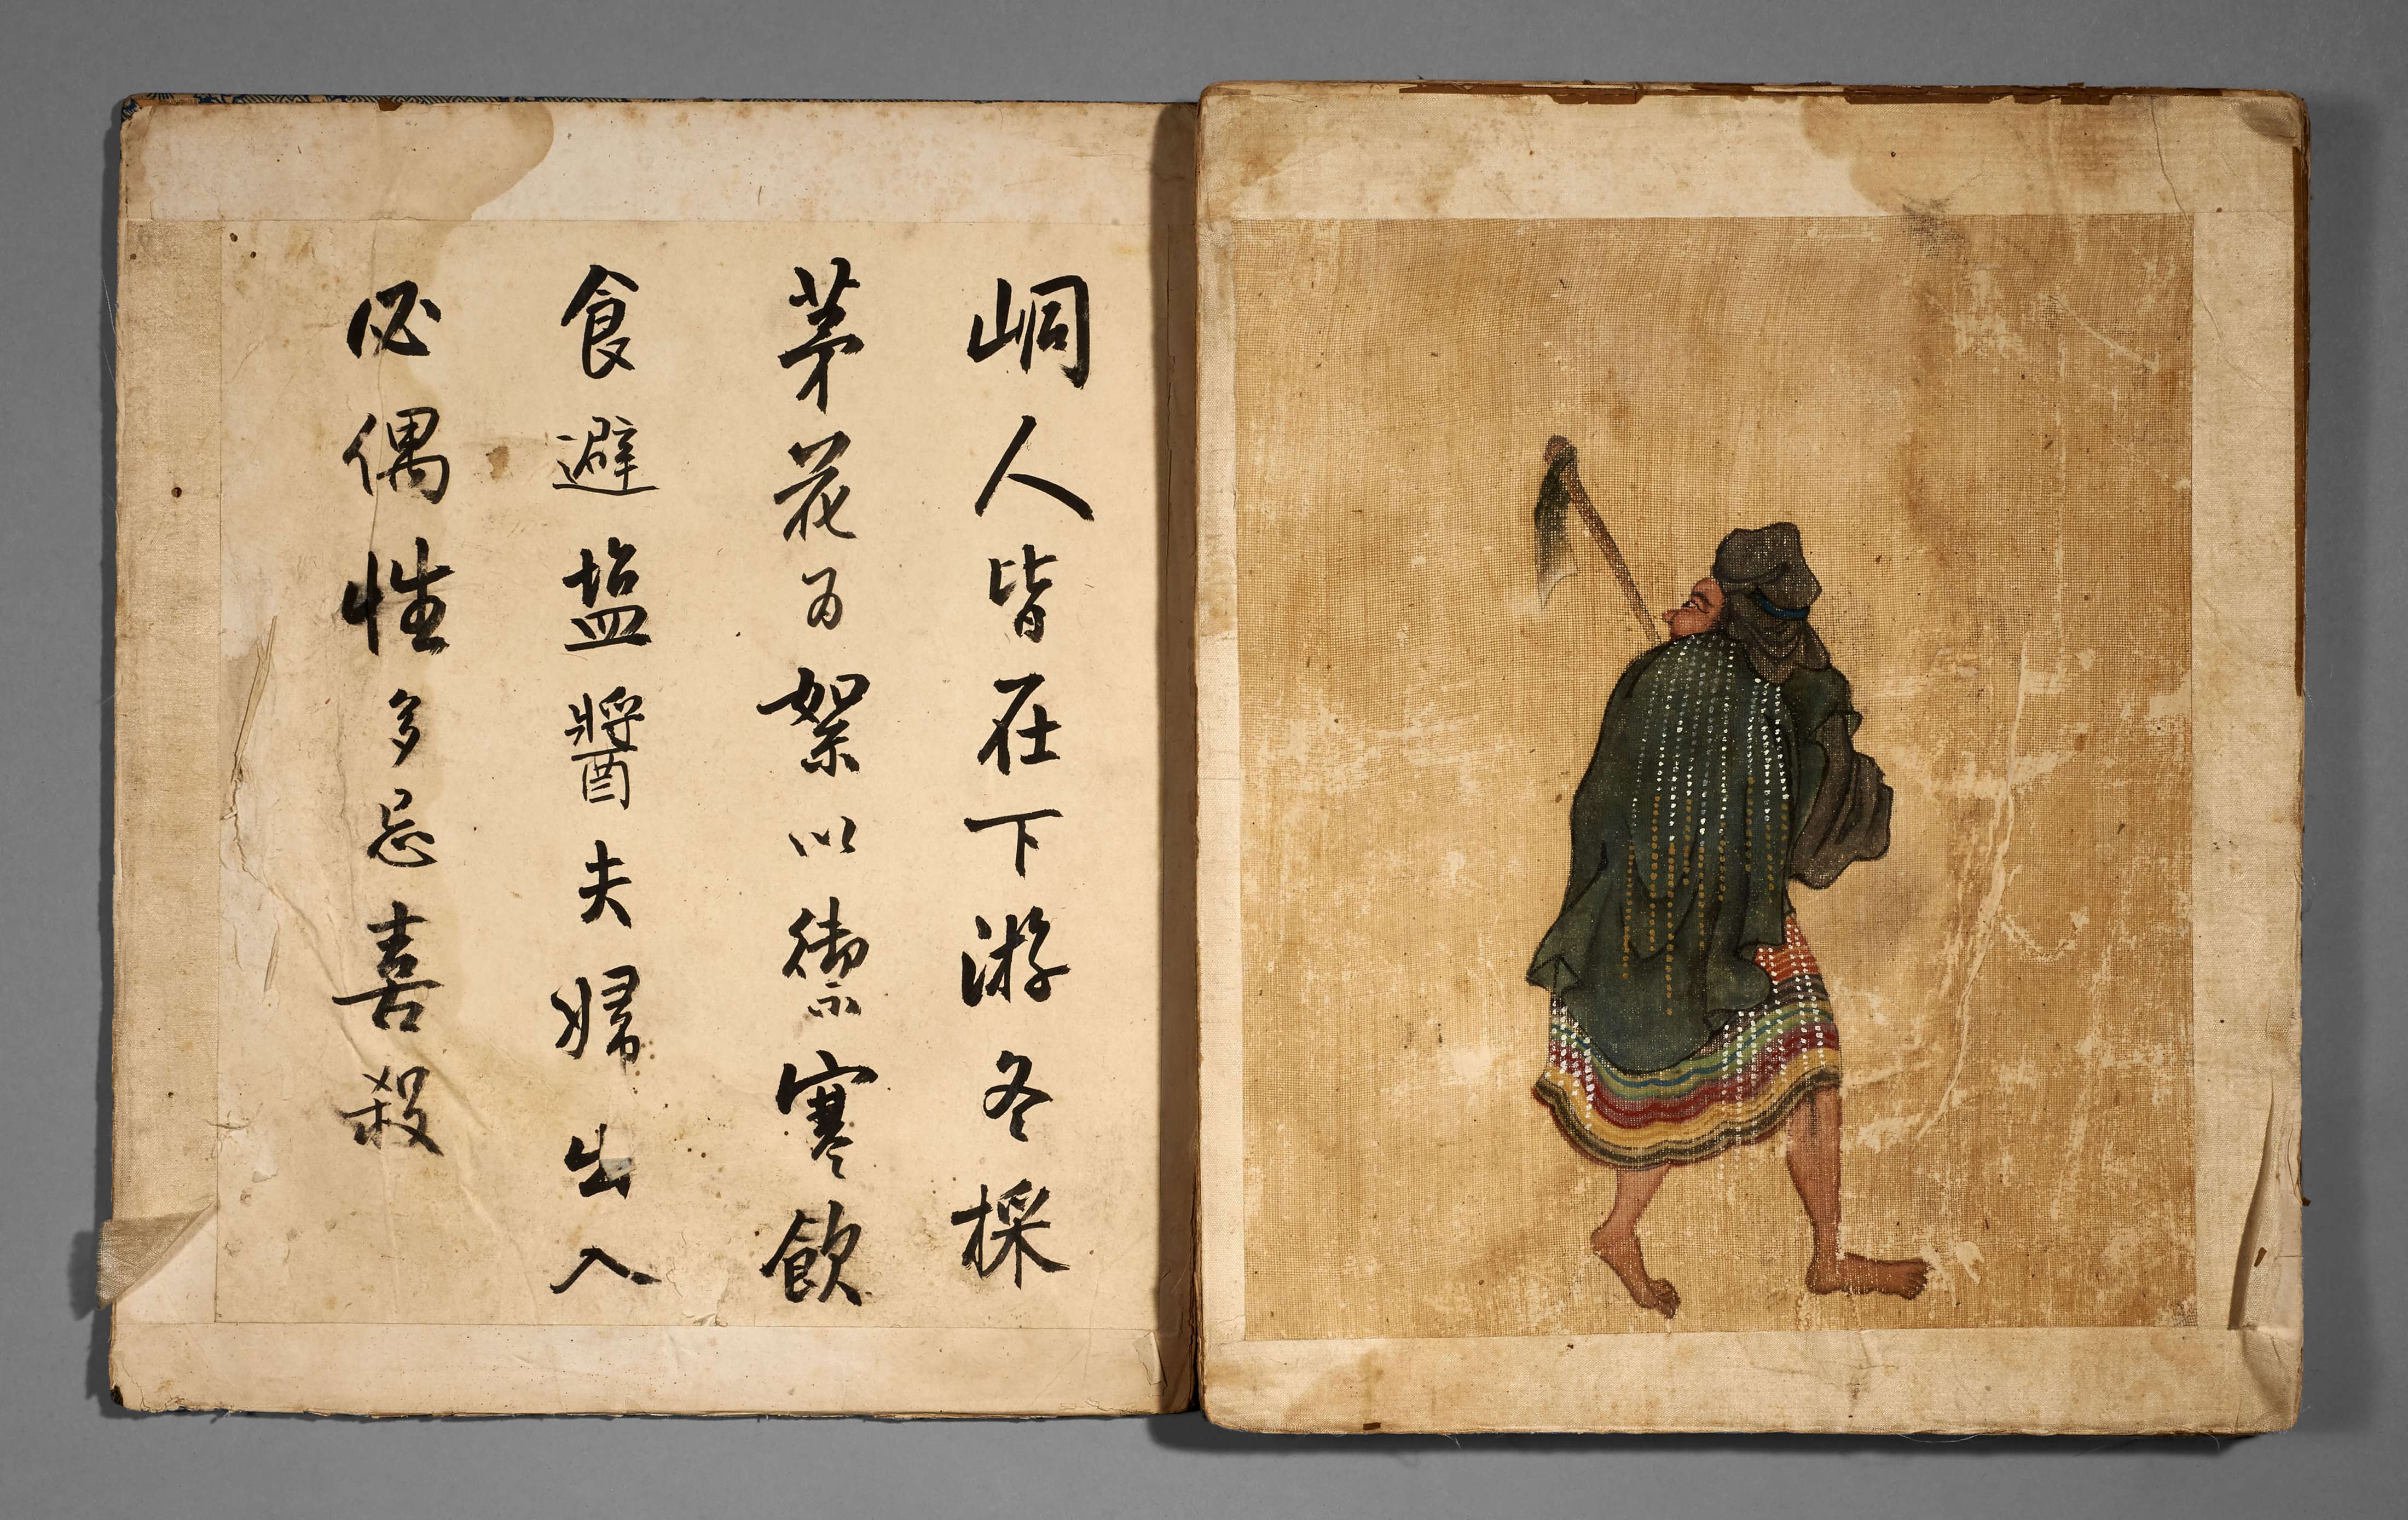 峒人皆在下游冬採
茅花为絮以禦寒飲
食避塩醬夫婦出入
必偶性多忌喜殺